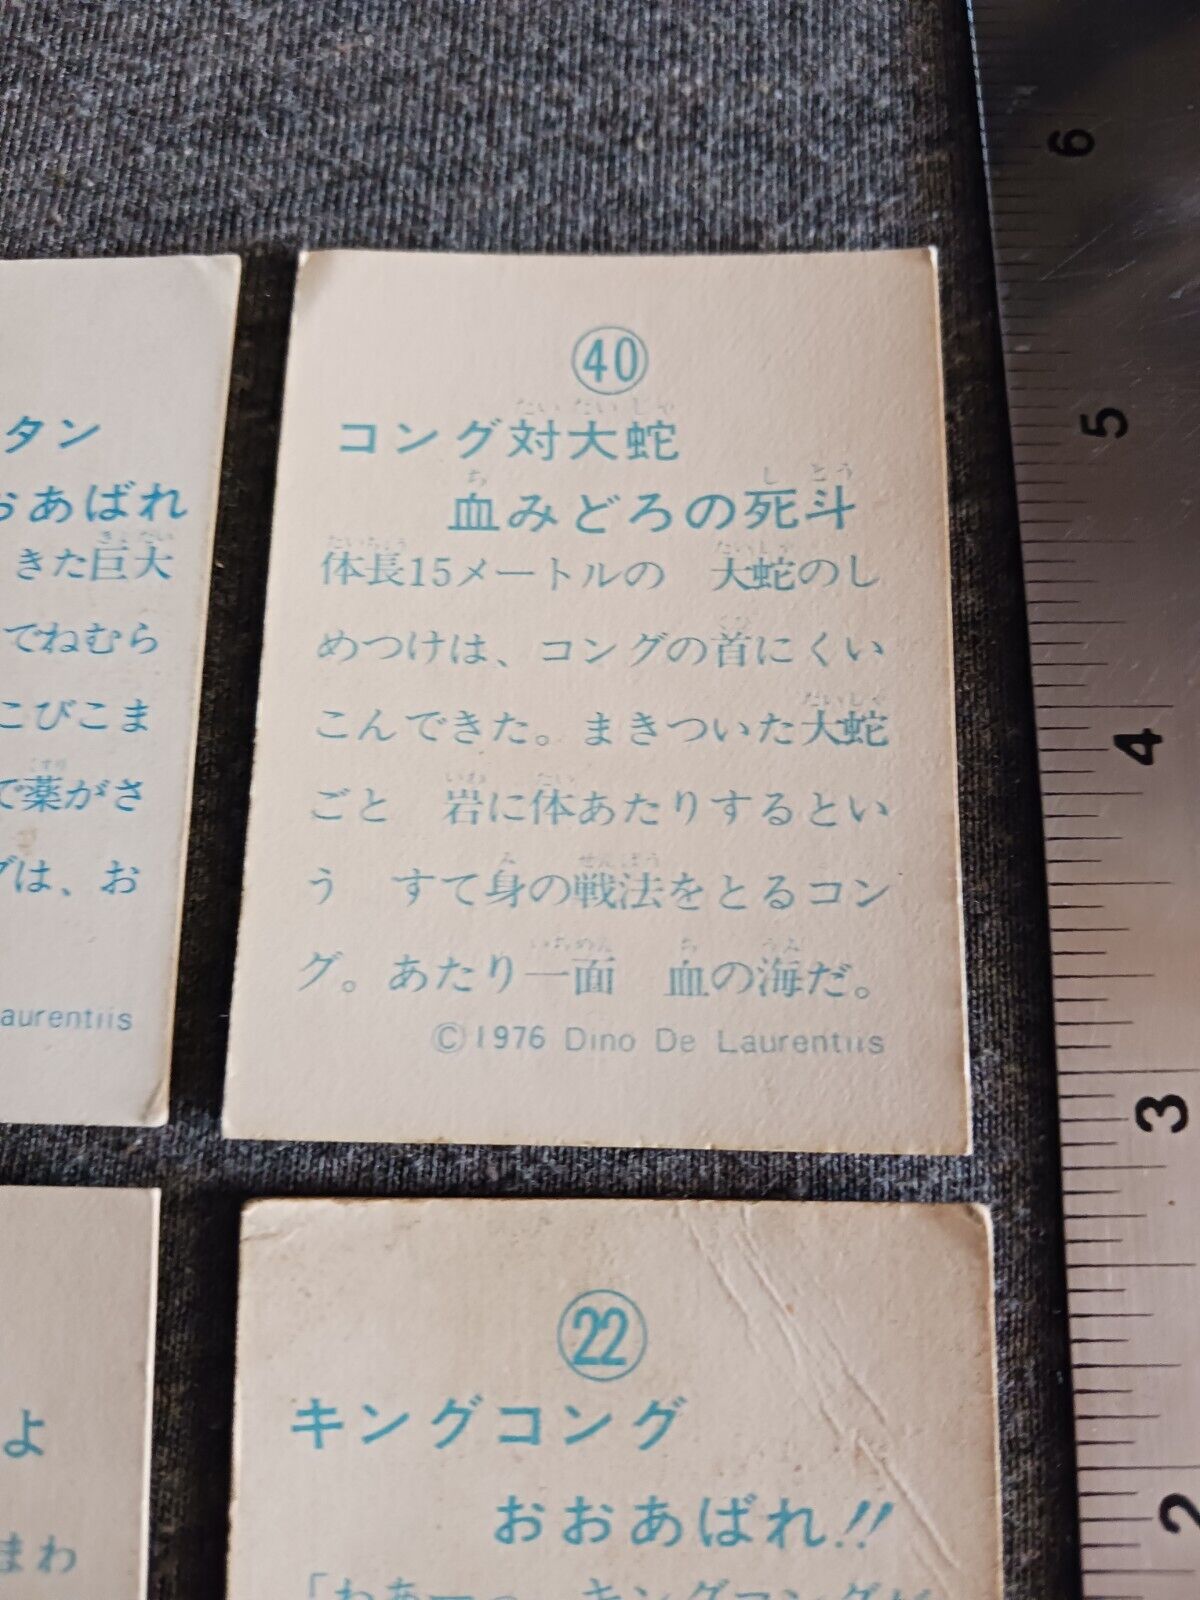 タン
おあばれ
きた巨大
でねむら
こびこま
で薬がさ
グは、お
aurentiis
40
コング対大蛇
血みどろの死斗
体長15メートルの 大蛇のし
めつけは、コングの首にくい
こんできた。まきついた大蛇
ごと 岩に体あたりするとい
う すて身の戦法をとるコン
グ。あたり一面 血の海だ。
©1976 Dino De Laurentiis
よ
まわ
22
キングコング
おおあばれ!!
「わあーっ、キングコングが
6
5
4
3
2